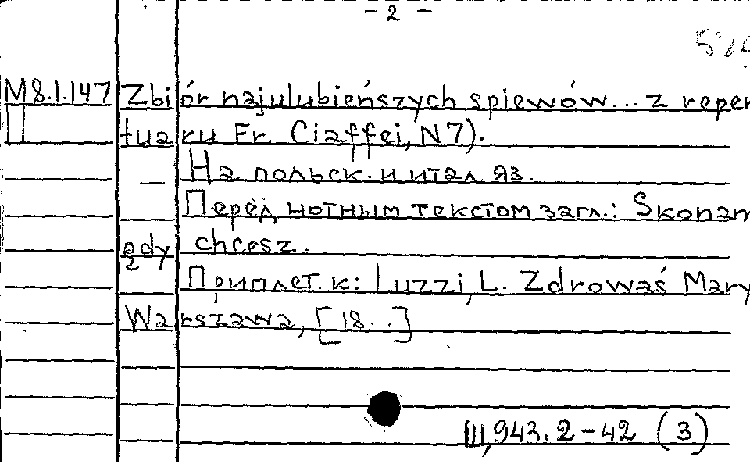 - 2 -
M 8.1.147 Zbiór najulubieńszych spiewów... z reper
II tuaru Fr. Ciaffei, N 7).
На польск. и итал. яз.
Перед нотным текстом загл.: Skonam
gdy chcesz.
Приплет. к: Luzzi, L. Zdrowaś Mary
Warszawa, [18..]
III, 943.2-42 (3)